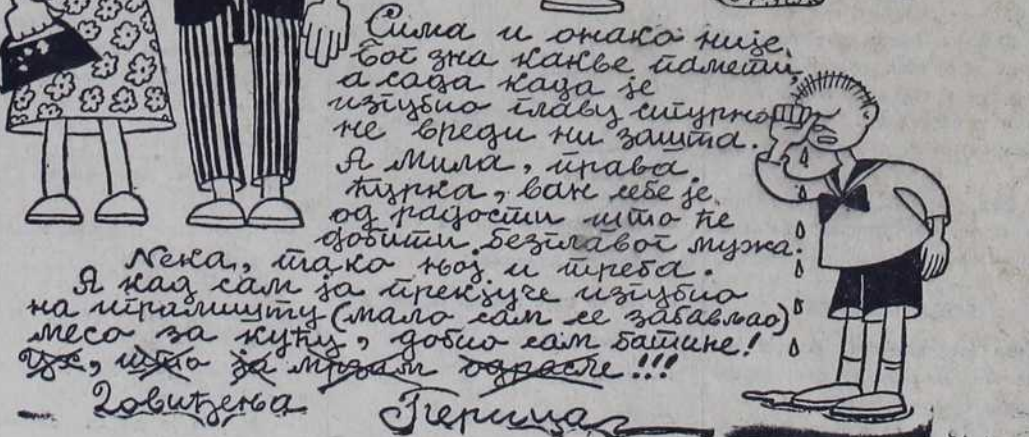 Сима и онако није
бог зна какве памети,
а сада када је
изгубио главу сигурно
не вреди ни зашта.
А Мила, права
ћурка, ван себе је
од радости што ће
добити безглавог мужа.
Нека, тако њој и треба.
А кад сам ја прекјуче изгубио
на игралишту (мало сам се забављао)
месо за кућу, добио сам батине!
Ух, што ја мрзам одрасле!!!
Довиђења
Перица